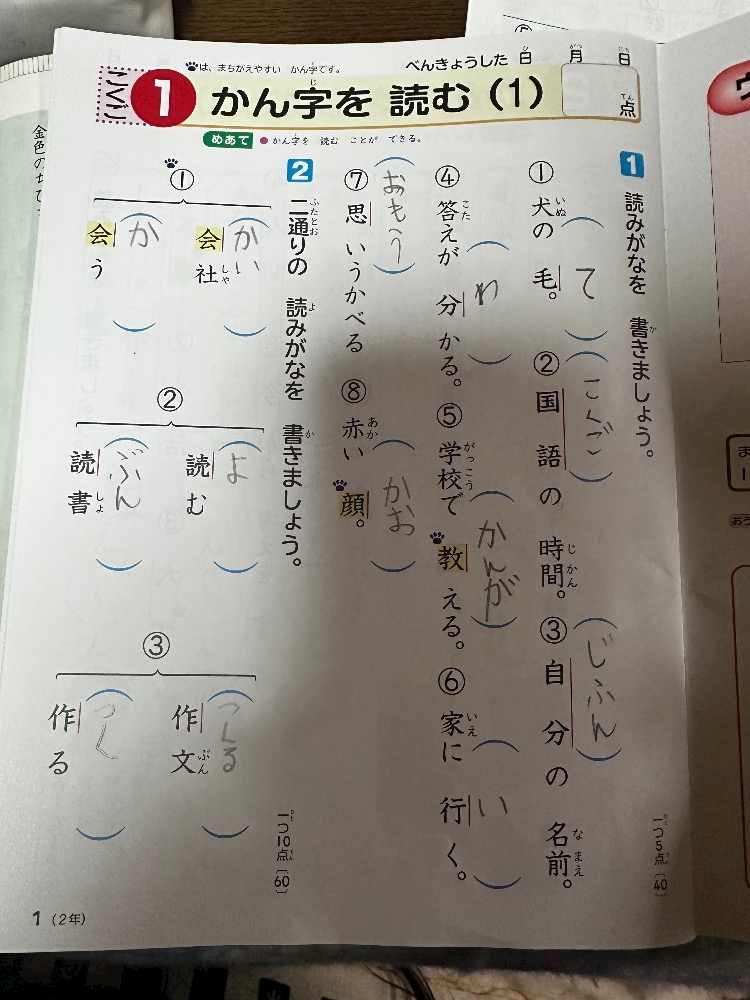 べんきょうした日 月 日
は、まちがえやすい かん字です。
1 かん字を 読む(1)
点
めあて ●かん字を 読む ことが できる。
1 読みがなを 書きましょう。
一つ5点(40)
①犬の 毛。 て
②国語の 時間。 こくご
③自分の 名前。 じふん
④答えが 分かる。 わ
⑤学校で 教える。 かんが
⑥家に 行く。 い
⑦思いうかべる おもう
⑧赤い 顔。 かお
2 二通りの 読みがなを 書きましょう。
一つ10点(60)
①
会社 かい
会う か
②
読む よ
読書 ぶん
③
作文 つくる
作る つく
1(2年)
金色の